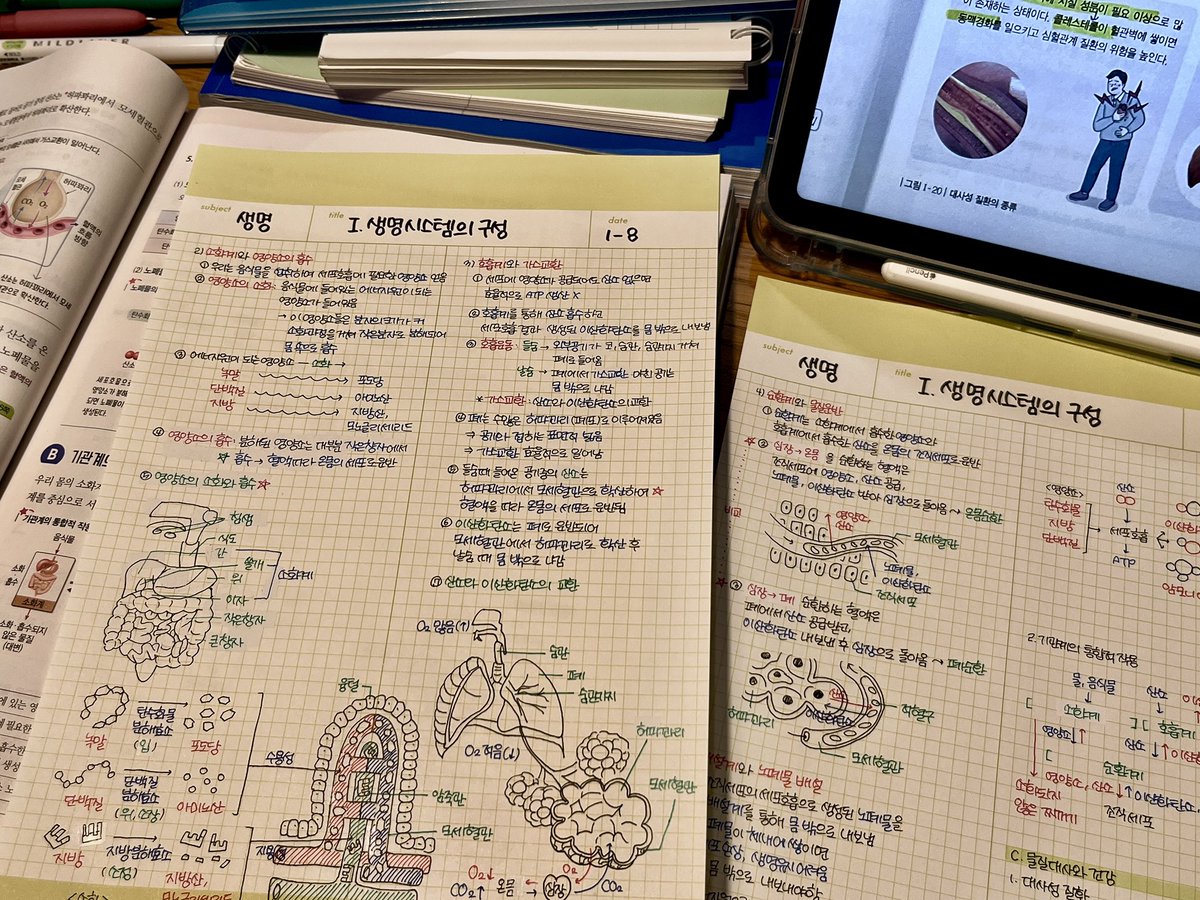 MILDLINER
허파꽈리에서 모세혈관으로
확산한다.
가스교환이 일어난다.
허파꽈리
CO₂ O₂
혈액의
흐름
방향
B 기관계의
우리 몸의 소화
계를 중심으로 서
기관계의 통합적 작용
음식물
소화
흡수
소화계
소화·흡수되지
않은 물질
(대변)
subject 생명 title I. 생명시스템의 구성 date 1-8
2) 소화계와 영양소의 흡수
① 우리는 음식물을 소화하여 세포호흡에 필요한 영양소 얻음
② 영양소의 소화: 음식물에 들어있는 에너지원이 되는
영양소가 들어있음
→ 이 영양소들은 분자의 크기가 커
소화과정을 거쳐 작은 분자로 분해되어
몸 속으로 흡수
③ 에너지원이 되는 영양소 — 소화 →
녹말 포도당
단백질 아미노산
지방 지방산,
모노글리세리드
④ 영양소의 흡수: 분해된 영양소는 대부분 작은창자에서
☆ 흡수 → 혈액 따라 온몸의 세포로 운반
⑤ 영양소의 소화와 흡수 ☆
침샘
식도
간
쓸개
위
이자
작은창자
큰창자
소화계
녹말
탄수화물
분해효소
(입)
포도당
단백질
단백질
분해효소
(위, 소장)
아미노산
지방
지방분해효소
(소장)
지방산,
모노글리세리드
수용성
지용성
융털
암죽관
모세혈관
3) 호흡계와 가스교환
① 세포에 영양소가 공급되어도 산소 없으면
효율적으로 ATP 생산 X
② 호흡계를 통해 산소 흡수하고
세포호흡 결과 생성된 이산화탄소를 몸 밖으로 내보냄
③ 호흡운동: 들숨 → 외부공기가 코, 숨관, 숨관가지 거쳐
폐로 들어옴
날숨 → 폐에서 가스교환 마친 공기는
몸 밖으로 나감
* 가스교환: 산소와 이산화탄소의 교환
④ 폐는 수많은 허파꽈리(폐포)로 이루어져있음
⇒ 공기와 접하는 표면적 넓음
⇒ 가스교환 효율적으로 일어남
⑤ 들숨 때 들어온 공기중의 산소는
허파꽈리에서 모세혈관으로 확산하여 ☆
혈액을 따라 온몸의 세포로 운반됨
⑥ 이산화탄소는 폐로 운반되어
모세혈관에서 허파꽈리로 확산 후
날숨 때 몸 밖으로 나감
⑦ 산소와 이산화탄소의 교환
O₂ 많음(↑)
숨관
폐
숨관가지
O₂ 적음(↓)
허파꽈리
모세혈관
O₂↓ O₂
CO₂↑ 온몸 심장 CO₂
지질 성분이 필요 이상으로 많
이 존재하는 상태이다. 콜레스테롤이 혈관벽에 쌓이면
동맥경화를 일으키고 심혈관계 질환의 위험을 높인다.
| 그림 I-20 | 대사성 질환의 종류
Pencil
subject 생명 title I. 생명시스템의 구성
4) 순환계와 물질운반
① 순환계는 소화계에서 흡수한 영양소와
호흡계에서 흡수한 산소를 온몸의 조직세포로 운반
☆ ② 심장 → 온몸 을 순환하는 혈액은
조직세포에 영양소, 산소 공급,
노폐물, 이산화탄소 받아 심장으로 돌아옴 → 온몸순환
비교
영양소,
산소
모세혈관
노폐물,
이산화탄소
조직세포
☆ ③ 심장 → 폐 순환하는 혈액은
폐에서 산소 공급받고,
이산화탄소 내보낸 후 심장으로 돌아옴 → 폐순환
산소
이산화탄소
적혈구
허파꽈리
모세혈관
배설계와 노폐물 배설
조직세포의 세포호흡으로 생성된 노폐물을
배설계를 통해 몸 밖으로 내보냄
노폐물이 체내에 쌓이면
생명유지 어려움
몸 밖으로 내보내야함
<영양소> 산소
탄수화물
지방
단백질
세포호흡
ATP
2. 기관계의 통합적 작용
물, 음식물 산소
소화계 호흡계
영양소 산소
순환계
영양소, 산소 이산화탄소
조직세포
소화되지
않은 찌꺼기
C. 물질대사와 건강
1. 대사성 질환